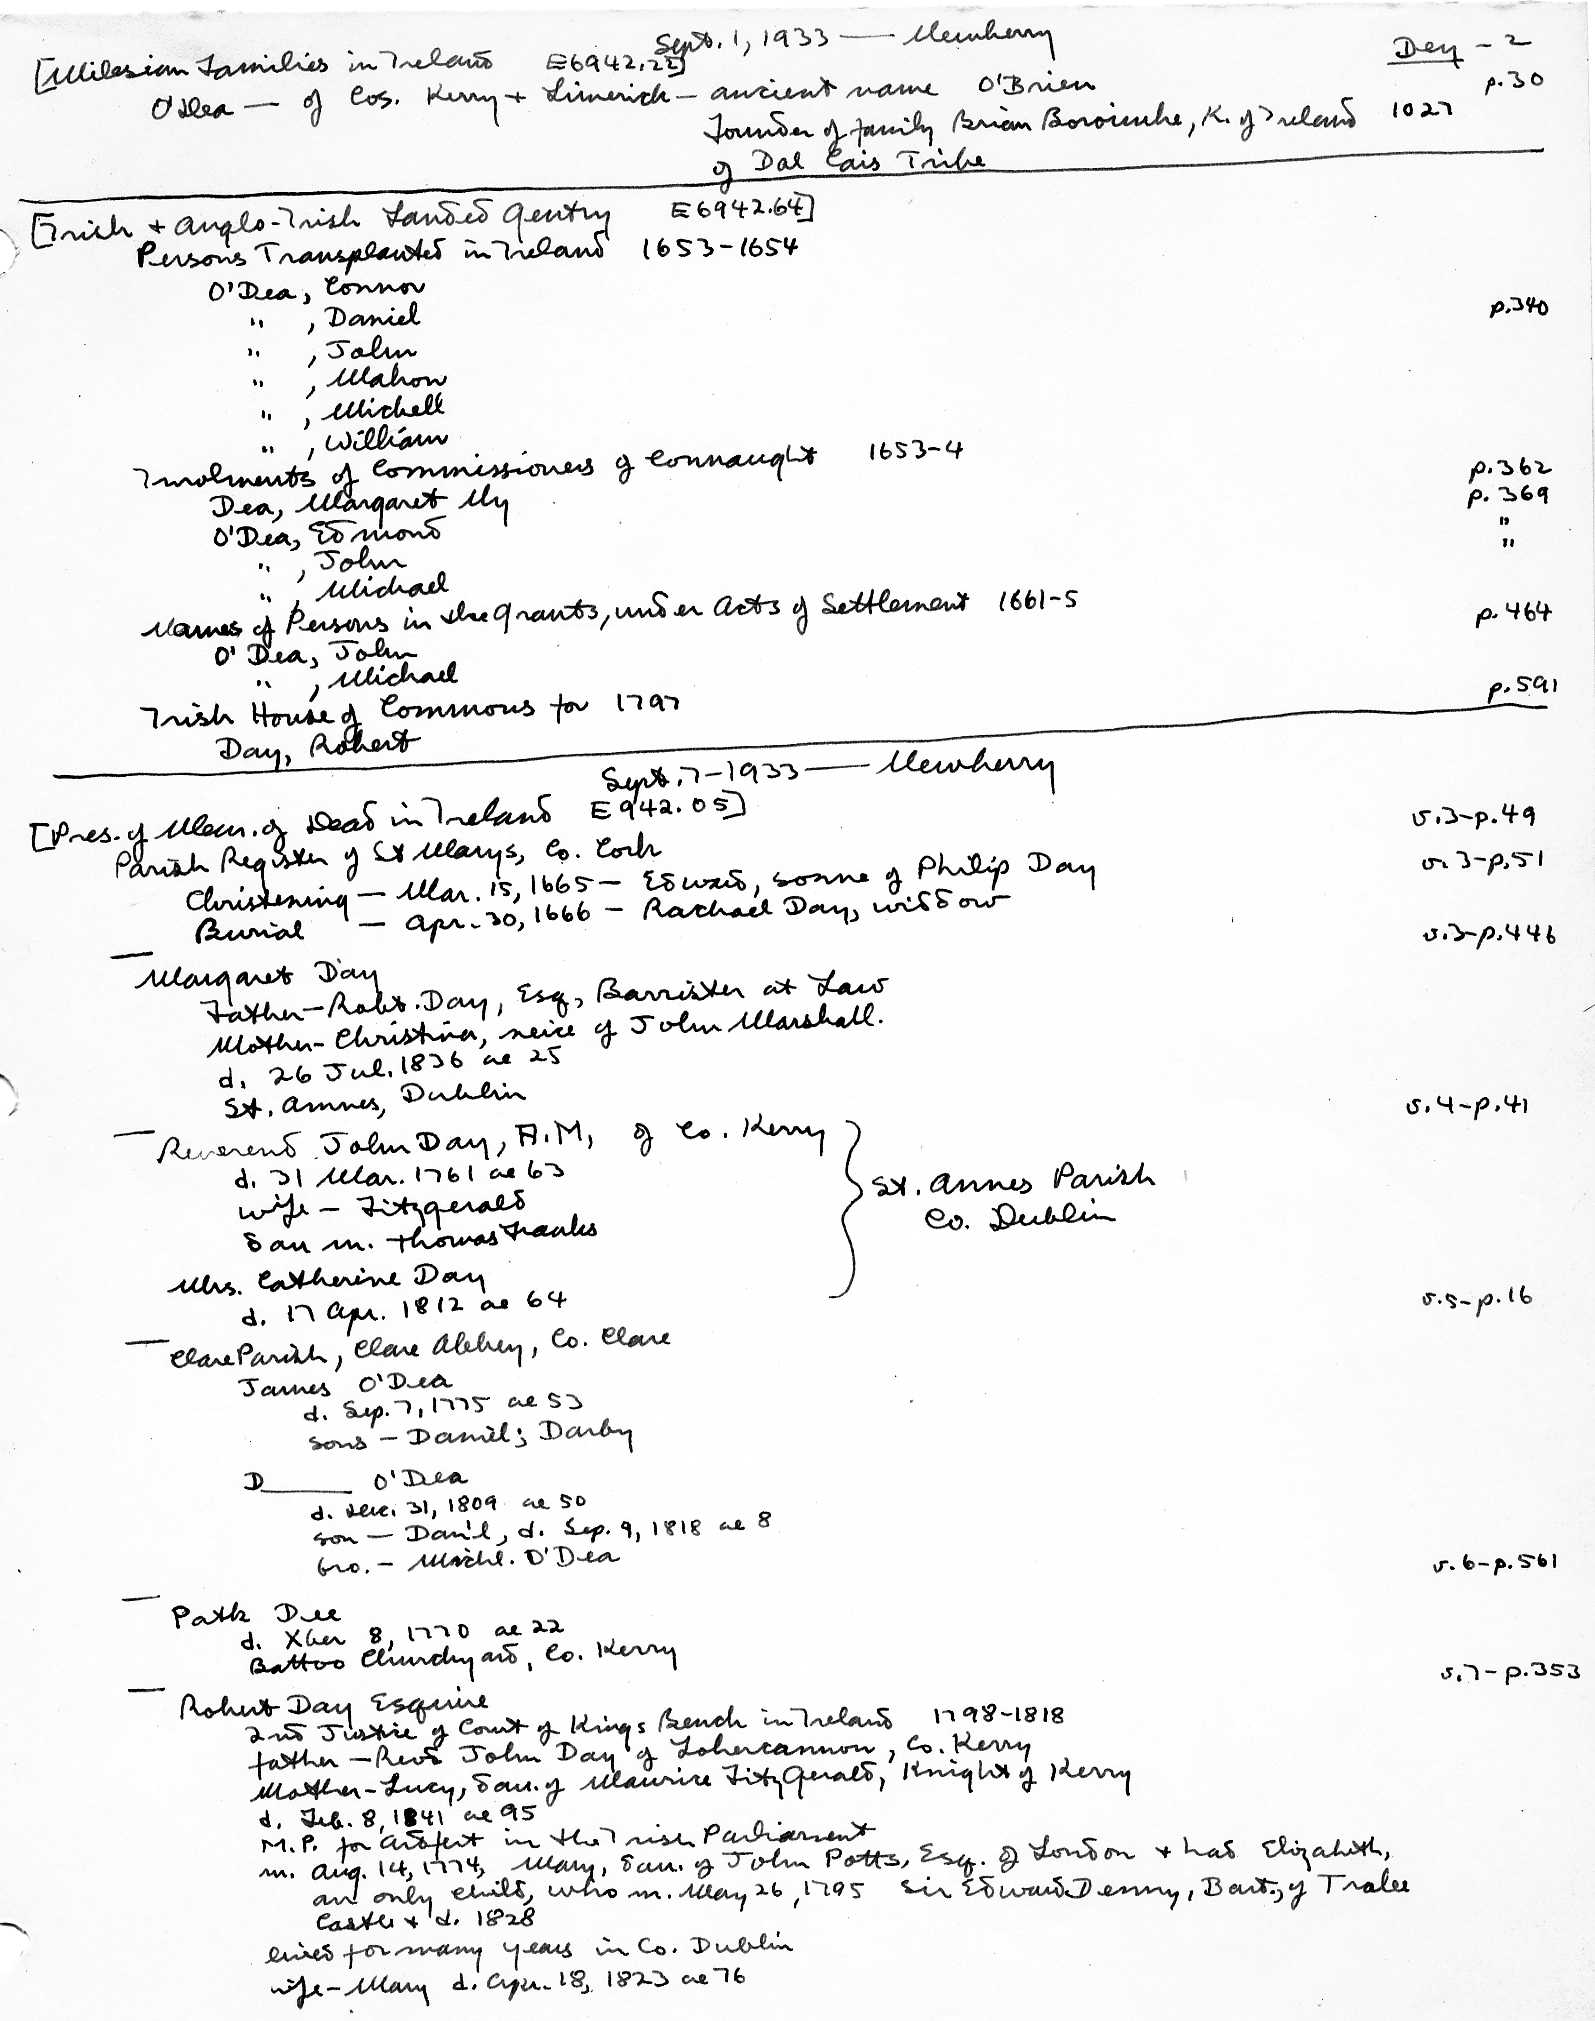 Sept. 1, 1933 — Newberry
Dey - 2
[Milesian Families in Ireland E6942.22]
p.30
O'Dea — of Cos. Kerry + Limerick — ancient name O'Brien
Founder of family Brian Boroimhe, K. of Ireland 1027
of Dal Cais Tribe
[Irish + Anglo-Irish Landed Gentry E6942.64]
Persons Transplanted in Ireland 1653-1654
O'Dea, Connor
p.340
" , Daniel
" , John
" , Mahon
" , Michell
" , William
Inrolments of Commissioners of Connaught 1653-4
p.362
Dea, Margaret Ny
p.369
O'Dea, Edmond
"
" , John
"
" , Michael
Names of Persons in the Grants, under Acts of Settlement 1661-5
p.464
O'Dea, John
" , Michael
Irish House of Commons for 1797
p.591
Day, Robert
Sept. 7-1933 — Newberry
[Pres. of Mem. of Dead in Ireland E942.05]
v.3-p.49
Parish Register of St Marys, Co. Cork
Christening — Mar. 15, 1665 — Edward, sonne of Philip Day
v.3-p.51
Burial — Apr. 30, 1666 — Rachael Day, widdow
v.3-p.446
Margaret Day
Father — Robt. Day, Esq, Barrister at Law
Mother - Christina, neice of John Marshall.
d. 26 Jul. 1836 ae 25
St. Annes, Dublin
v.4-p.41
Reverend John Day, A.M, of Co. Kerry
d. 31 Mar. 1761 ae 63
wife — Fitzgerald
dau m. Thomas Franks
St. Annes Parish
Co. Dublin
Mrs. Catherine Day
d. 17 Apr. 1812 ae 64
v.5-p.16
Clare Parish, Clare Abbey, Co. Clare
James O'Dea
d. Sep. 7, 1775 ae 53
sons — Daniel; Darby
D____ O'Dea
d. Dec. 31, 1809 ae 50
son — Dan'l, d. Sep. 9, 1818 ae 8
bro. — Michl. O'Dea
v.6-p.561
Patk Dee
d. Xber 8, 1770 ae 22
Battoo Churchyard, Co. Kerry
v.7-p.353
Robert Day Esquire
2nd Justice of Court of Kings Bench in Ireland 1798-1818
father — Revd John Day of Lohercannon, Co. Kerry
Mother - Lucy, dau. of Maurice FitzGerald, Knight of Kerry
d. Feb. 8, 1841 ae 95
M.P. for Ardfert in the Irish Parliament
m. Aug. 14, 1774, Mary, dau. of John Potts, Esq. of London + had Elizabeth,
an only child, who m. May 26, 1795 Sir Edward Denny, Bart., of Tralee
Castle + d. 1828
lived for many years in Co. Dublin
wife - Mary d. Apr. 18, 1823 ae 76